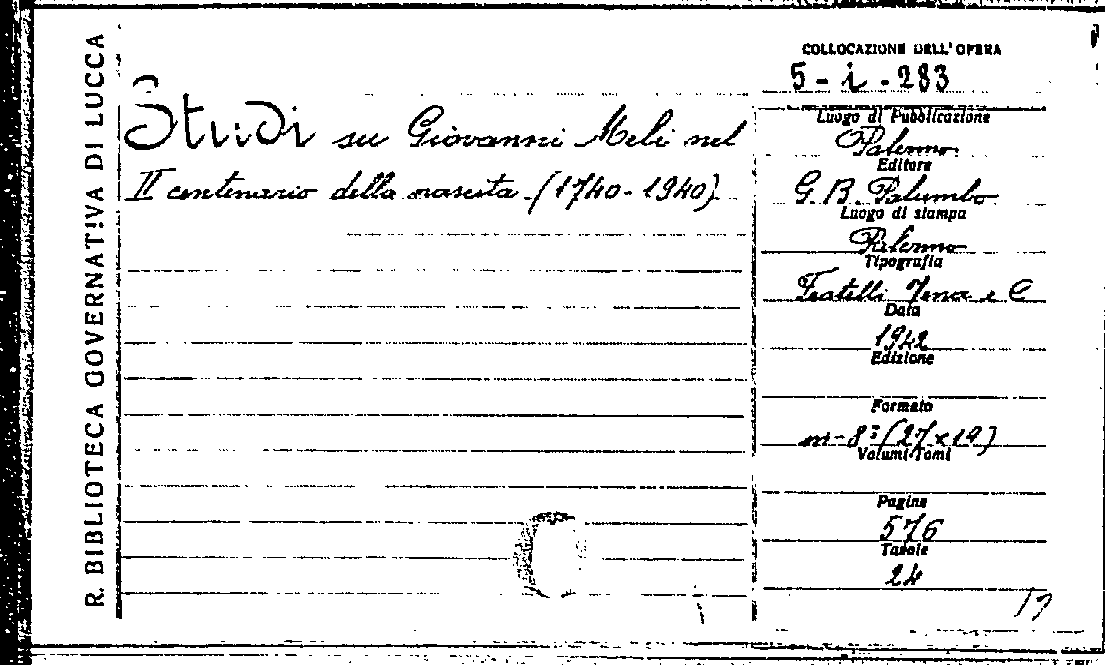 R. BIBLIOTECA GOVERNATIVA DI LUCCA
Studi su Giovanni Meli nel
II centenario della nascita (1740-1940)
COLLOCAZIONE DELL'OPERA
5-i-283
Luogo di Pubblicazione
Palermo
Editore
G. B. Palumbo
Luogo di stampa
Palermo
Tipografia
Fratelli e C
Data
1942
Edizione
Formato
in-8° (27x19)
Volumi-Tomi
Pagine
576
Tavole
24